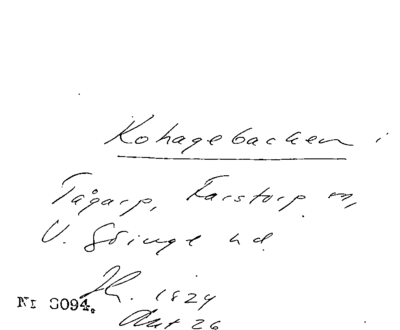 Kohagebacken i
Tågarp, Farstorp sn,
V. Göinge hd.
1829
Akt 26
NI 8094.